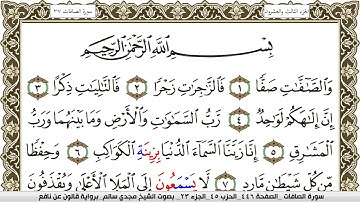 الجزء الثالث والعشرون
سورة الصافات ٣٧
بِسْمِ اللَّهِ الرَّحْمَٰنِ الرَّحِيمِ
وَالصَّٰٓفَّٰتِ صَفّٗا ١ فَالزَّٰجِرَٰتِ زَجْرٗا ٢ فَالتَّٰلِيَٰتِ ذِكْرًا ٣
إِنَّ إِلَٰهَكُمْ لَوَٰحِدٞ ٤ رَّبُّ السَّمَٰوَٰتِ وَالْأَرْضِ وَمَا بَيْنَهُمَا وَرَبُّ
الْمَشَٰرِقِ ٥ إِنَّا زَيَّنَّا السَّمَآءَ الدُّنْيَا بِزِينَةِ الْكَوَاكِبِ ٦ وَحِفْظٗا
مِّن كُلِّ شَيْطَٰنٖ مَّارِدٖ ٧ لَّا يَسْمَعُونَ إِلَى الْمَلَإِ الْأَعْلَىٰ وَيُقْذَفُونَ
سورة الصافات . صفحة ٤٤٦ . الحزب ٤٥ . الجزء ٢٣ . بصوت الشيخ مجدي سالم . برواية قالون عن نافع